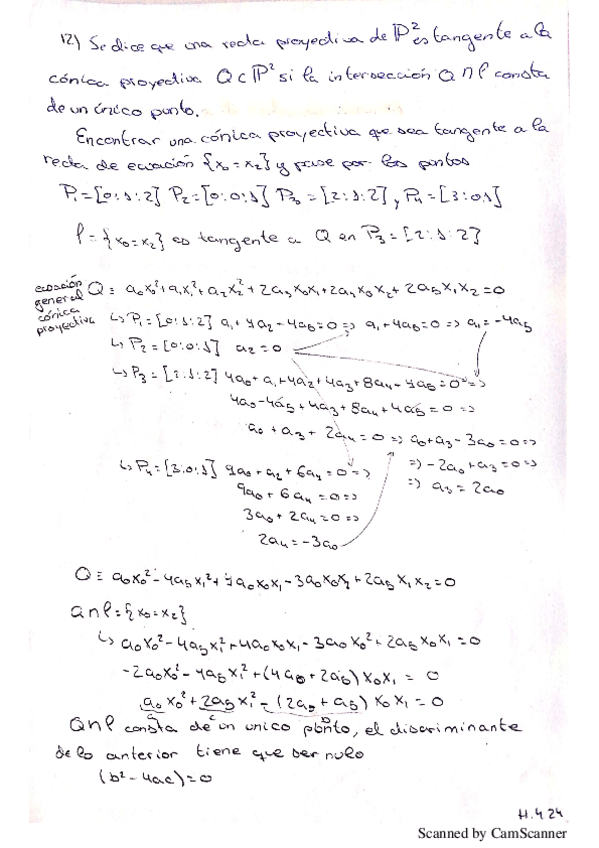 12) Se dice que una recta proyectiva de P² es tangente a la
cónica proyectiva Q⊂P² si la intersección Q∩l consta
de un único punto.
Encontrar una cónica proyectiva que sea tangente a la
recta de ecuación {x₀=x₂} y pase por los puntos
P₁=[0:1:2] P₂=[0:0:1] P₃=[2:1:2], P₄=[3:0:1]
l={x₀=x₂} es tangente a Q en P₃=[2:1:2]
ecuación
general
cónica
proyectiva
Q ≡ a₀x₀²+a₁x₁²+a₂x₂²+2a₃x₀x₁+2a₄x₀x₂+2a₅x₁x₂=0
↳ P₁=[0:1:2] a₁+4a₂-4a₅=0 => a₁+4a₅=0 => a₁=-4a₅
↳ P₂=[0:0:1] a₂=0
↳ P₃=[2:1:2] 4a₀+a₁+4a₂+4a₃+8a₄-4a₅=0 =>
4a₀-4a₅+4a₃+8a₄+4a₅=0 =>
a₀+a₃+2a₄=0 => a₀+a₃-3a₀=0 =>
=> -2a₀+a₃=0 =>
=> a₃=2a₀
↳ P₄=[3:0:1] 9a₀+a₂+6a₄=0 =>
9a₀+6a₄=0 =>
3a₀+2a₄=0 =>
2a₄=-3a₀
Q ≡ a₀x₀²-4a₅x₁²+4a₀x₀x₁-3a₀x₀x₂+2a₅x₁x₂=0
Q∩l={x₀=x₂}
↳ a₀x₀²-4a₅x₁²+4a₀x₀x₁-3a₀x₀²+2a₅x₀x₁=0
-2a₀x₀²-4a₅x₁²+(4a₀+2a₅)x₀x₁=0
a₀x₀²+2a₅x₁²-(2a₀+a₅)x₀x₁=0
a c b
Q∩l consta de un unico punto, el discriminante
de lo anterior tiene que ser nulo
(b²-4ac)=0
H.4 24
Scanned by CamScanner